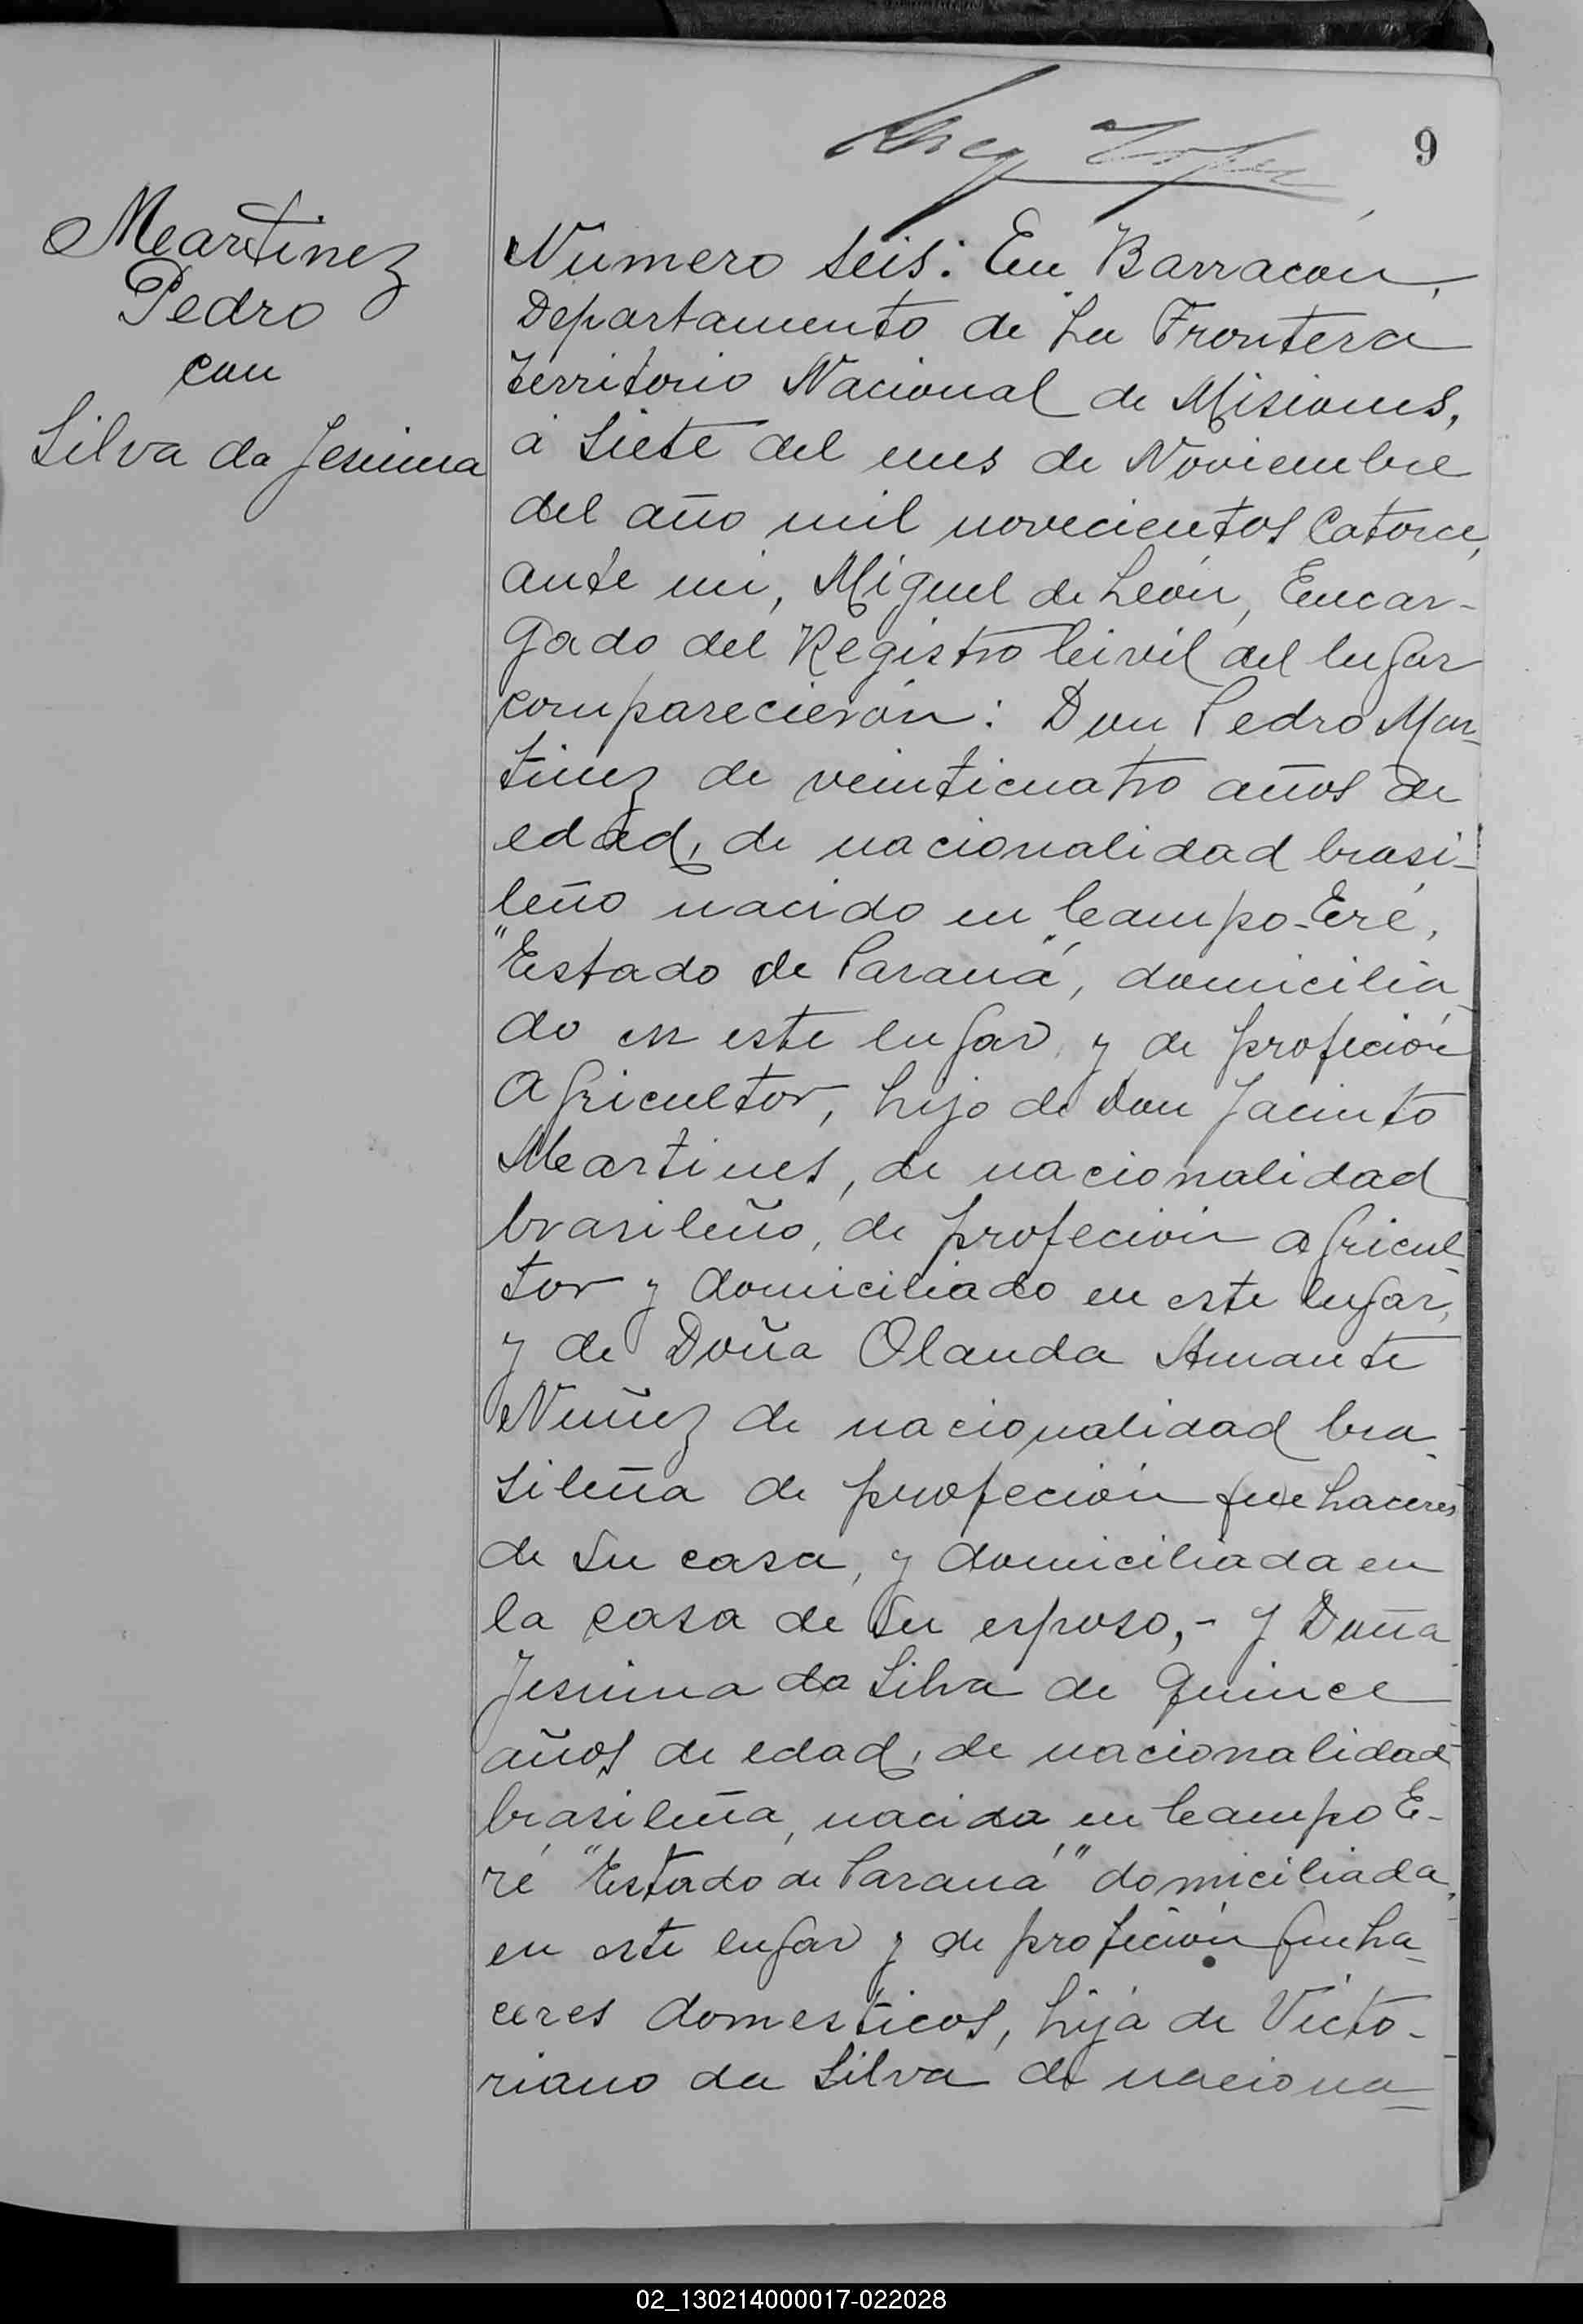 9
Martinez
Pedro
con
Silva da Jesuina
Número seis: En Barracón,
Departamento de La Frontera
territorio Nacional de Misiones,
á siete del mes de Noviembre
del año mil novecientos Catorce,
ante mi, Miguel de León, Encar-
gado del Registro Civil del lugar
comparecierón: Don Pedro Mar-
tinez de veinticuatro años de
edad, de nacionalidad brasi-
leño nacido en Campo-Eré,
"Estado de Paraná", domicilia-
do en este lugar, y de profeción
agricultor, hijo de Don Jacinto
Martines, de nacionalidad
brasileño, de profeción agricul-
tor y domiciliado en este lugar,
y de Doña Olanda Amante
Nuñez de nacionalidad bra-
sileña de profeción quehaceres
de su casa, y domiciliada en
la casa de su esposo,- y Doña
Jesuina da Silva de quince
años de edad, de nacionalidad
brasileña, nacida en Campo E-
ré "Estado de Paraná" domiciliada,
en este lugar y de profeción queha-
ceres domesticos, hija de Victo-
riano da Silva de naciona-
02_130214000017-022028